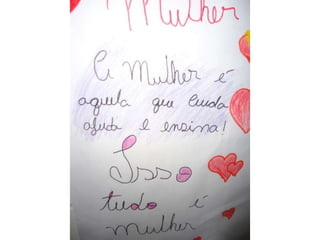 Mulher
A Mulher é
aquela que cuida
ajuda e ensina!
Isso
tudo é
mulher